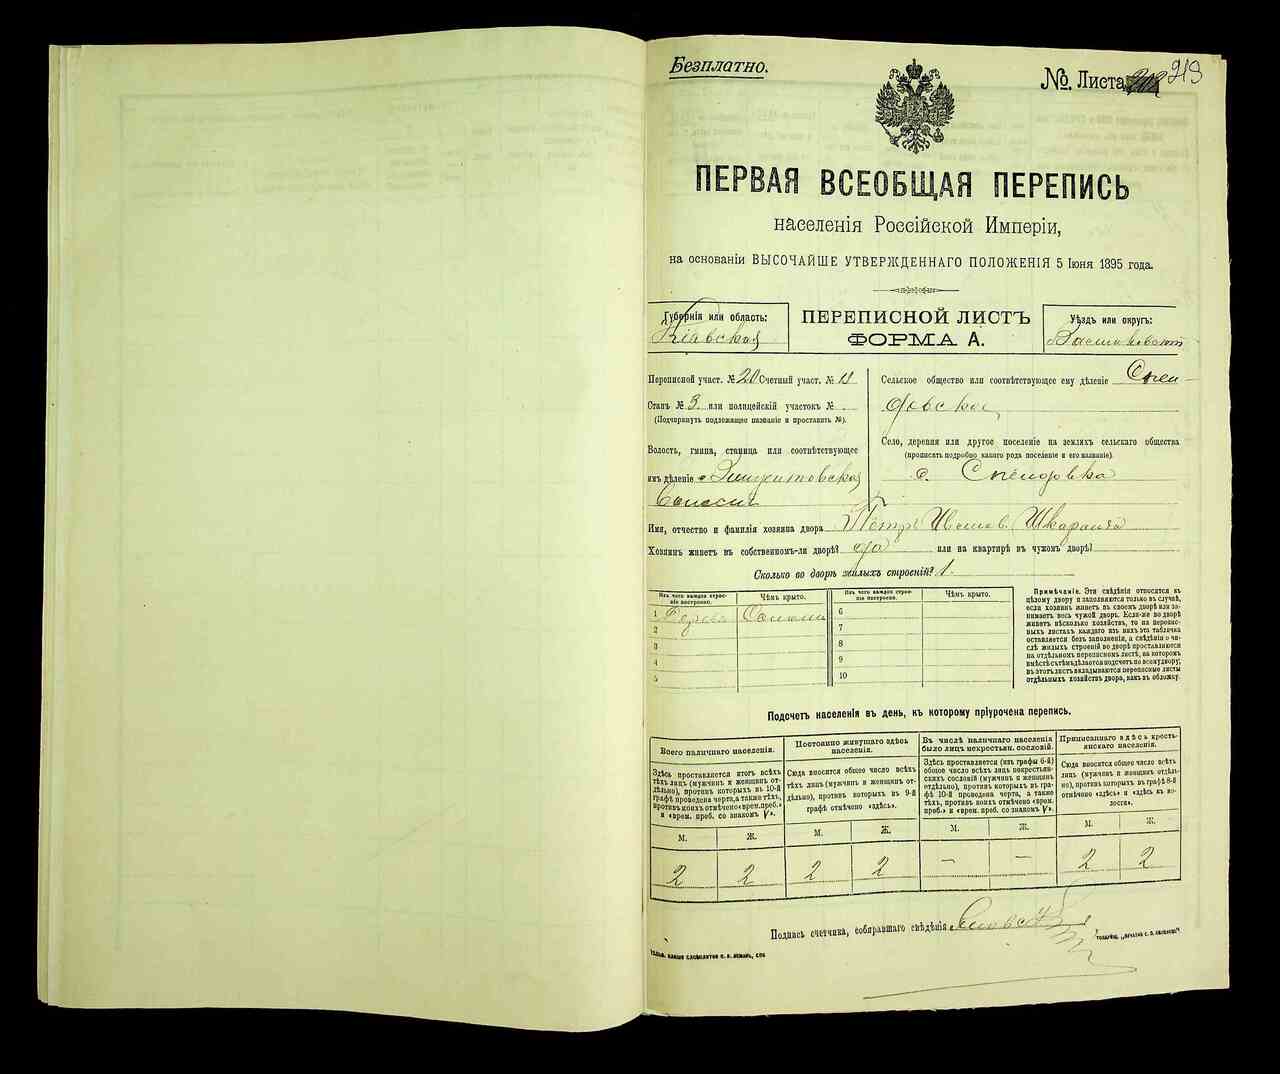 Безплатно.
№. Листа 219
ПЕРВАЯ ВСЕОБЩАЯ ПЕРЕПИСЬ
населенія Россійской Имперіи,
на основаніи ВЫСОЧАЙШЕ УТВЕРЖДЕННАГО ПОЛОЖЕНІЯ 5 Іюня 1895 года.
Губернія или область:
Кіевская
ПЕРЕПИСНОЙ ЛИСТЪ
ФОРМА А.
Уѣздъ или округъ:
Переписной участ. № 20 Счетный участ. №
Станъ № 3. или полицейскій участокъ № .
(Подчеркнуть подлежащее названіе и проставить №).
Волость, гмина, станица или соотвѣтствующее
имъ дѣленіе
Сельское общество или соотвѣтствующее ему дѣленіе
Село, деревня или другое поселеніе на земляхъ сельскаго общества
(прописать подробно какого рода поселеніе и его названіе).
с.
Имя, отчество и фамилія хозяина двора Петръ Ивановъ
Хозяинъ живетъ въ собственномъ-ли дворѣ? да или на квартирѣ въ чужомъ дворѣ?
Сколько во дворѣ жилыхъ строеній? 1.
Изъ чего каждое строеніе построено. Чѣмъ крыто. Изъ чего каждое строеніе построено. Чѣмъ крыто.
1 Дерева Соломы 6
2 7
3 8
4 9
5 10
Примѣчаніе. Эти свѣдѣнія относятся къ
цѣлому двору и заполняются только въ случаѣ,
если хозяинъ живетъ въ своемъ дворѣ или занимаетъ
весь чужой дворъ. Если-же во дворѣ
живетъ нѣсколько хозяйствъ, то на переписныхъ
листахъ каждаго изъ нихъ эта табличка
оставляется безъ заполненія, а свѣдѣнія о числѣ
жилыхъ строеній во дворѣ проставляются
на отдѣльномъ переписномъ листѣ, на которомъ
вмѣстѣ съ тѣмъ дѣлается подсчетъ по всему двору;
въ этотъ листъ вкладываются переписные листы
отдѣльныхъ хозяйствъ двора, какъ въ обложку.
Подсчетъ населенія въ день, къ которому пріурочена перепись.
Всего наличнаго населенія.
Здѣсь проставляется итогъ всѣхъ
тѣхъ лицъ (мужчинъ и женщинъ отдѣльно),
противъ которыхъ въ 10-й
графѣ проведена черта, а также тѣхъ,
противъ коихъ отмѣчено «врем. преб.»
и «врем. преб. со знакомъ V».
Постоянно живущаго здѣсь населенія.
Сюда вносится общее число всѣхъ
тѣхъ лицъ (мужчинъ и женщинъ отдѣльно),
противъ которыхъ въ 9-й
графѣ отмѣчено «здѣсь».
Въ числѣ наличнаго населенія
было лицъ некрестьян. сословій.
Здѣсь проставляется (изъ графы 6-й)
общее число всѣхъ лицъ некрестьянскихъ
сословій (мужчинъ и женщинъ
отдѣльно), противъ которыхъ въ графѣ
10-й проведена черта, а также
тѣхъ, противъ коихъ отмѣчено «врем.
преб.» и «врем. преб. со знакомъ V».
Приписаннаго здѣсь крестьянскаго
населенія.
Сюда вносится общее число всѣхъ
лицъ (мужчинъ и женщинъ отдѣльно),
противъ которыхъ въ графѣ 8-й
отмѣчено «здѣсь» и «здѣсь къ волости».
М. Ж. М. Ж. М. Ж. М. Ж.
2 2 2 2 – – 2 2
Подпись счетчика, собиравшаго свѣдѣнія